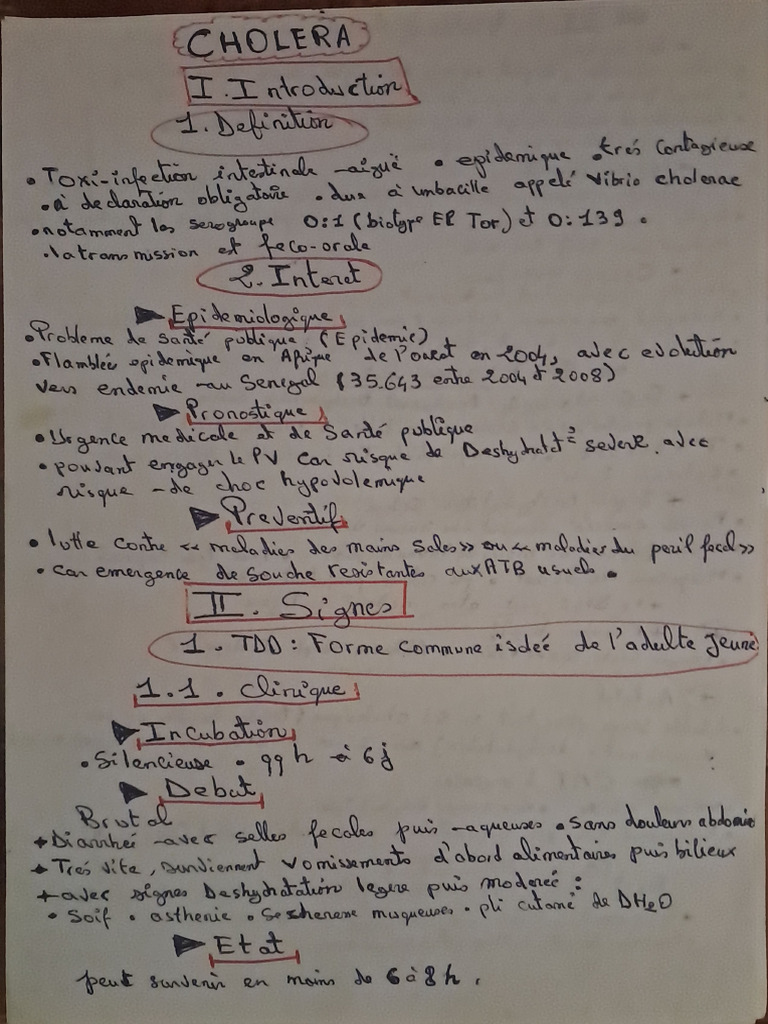 CHOLERA
I. Introduction
1. Definition
• Toxi-infection intestinale aiguë • epidemique • trés contagieuse
• à declaration obligatoire • due à un bacille appelé Vibrio cholerae
• notamment les serogroupe O:1 (biotype El Tor) et O:139 .
• la transmission et feco-orale
2. Interet
Epidemiologique
• Probleme de santé publique (Epidemie)
• Flambleé epidemique en Afrique de l'ouest en 2004, avec evolution
vers endemie au Senegal (35.643 entre 2004 et 2008)
Pronostique
• Urgence medicale et de Santé publique
• pouvant engager le PV car risque de Deshydtat° severe avec
risque de choc hypovolemique
Preventif
• lutte contre << maladies des mains sales >> ou << maladies du peril fecal >>
• car emergence de souche resistantes aux ATB usuels .
II. Signes
1. TDD : Forme commune isoleé de l'adulte Jeune
1.1. clinique
Incubation
• Silencieuse • qq h à 6j
Debut
Brutal
+ Diarrheé avec selles fecales puis aqueuses • sans douleurs abdomin
+ Trés vite, surviennent vomissements d'abord alimentaires puis bilieux
+ avec signes Deshydratation legere puis modereé :
• Soif • asthenie • Secherese muqueuses • pli cutané de DH2O
Etat
peut survenir en moins de 6 à 8 h .